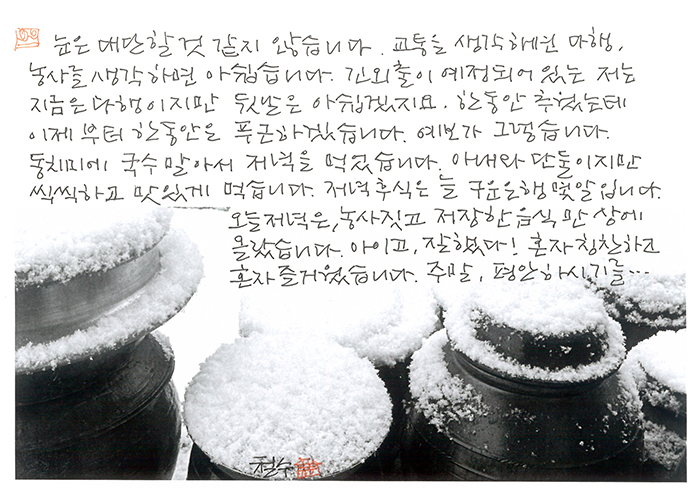 눈은 대단할 것 같지 않습니다. 교통을 생각하면 다행,
농사를 생각하면 아쉽습니다. 긴 외출이 예정되어 있는 저는
지금은 다행이지만 뒷날은 아쉽겠지요. 한동안 추웠는데
이제부터 한동안은 푸근하겠습니다. 예보가 그렇습니다.
동치미에 국수 말아서 저녁을 먹었습니다. 아내와 단둘이지만
씩씩하고 맛있게 먹습니다. 저녁 후식은 늘 구운은행 몇알입니다.
오늘 저녁은, 농사짓고 저장한 음식만 상에
올랐습니다. 아이고, 잘했다! 혼자 칭찬하고
혼자 즐거웠습니다. 주말, 평안하시기를…
철수